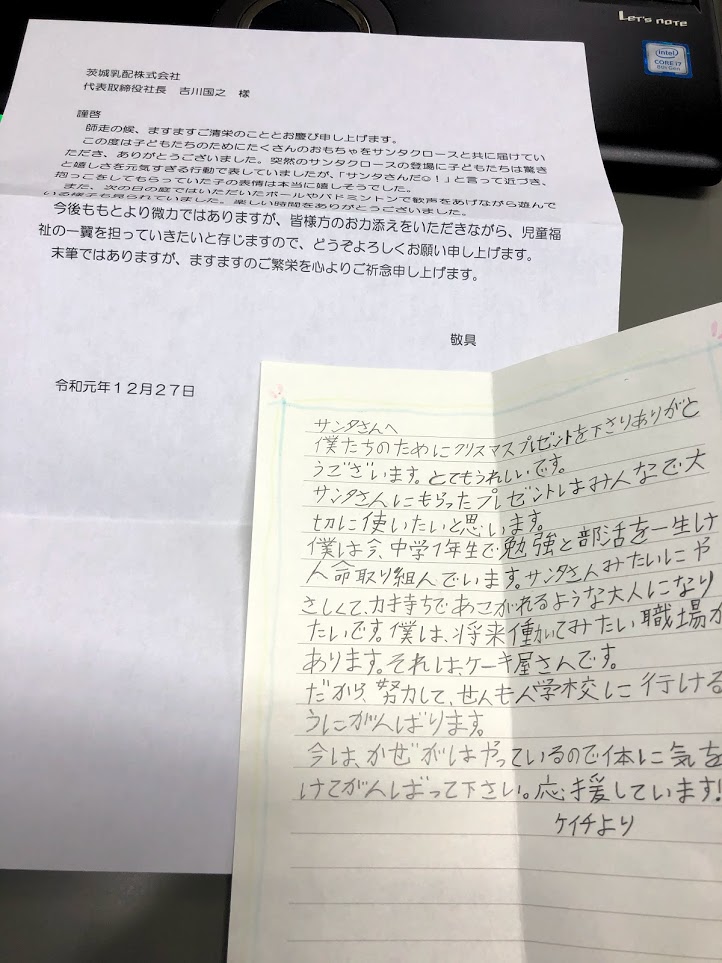 LET'S NOTE
intel
CORE i7
8th Gen
茨城乳配株式会社
代表取締役社長　吉川国之　様
謹啓
師走の候、ますますご清栄のこととお慶び申し上げます。
この度は子どもたちのためにたくさんのおもちゃをサンタクロースと共に届けてい
ただき、ありがとうございました。突然のサンタクロースの登場に子どもたちは驚き
と嬉しさを元気すぎる行動で表していましたが、「サンタさんだ☺！」と言って近づき、
抱っこをしてもらっていた子の表情は本当に嬉しそうでした。
また、次の日の庭ではいただいたボールやバドミントンで歓声をあげながら遊んで
いる様子も見られていました。楽しい時間をありがとうございました。
今後ももとより微力ではありますが、皆様方のお力添えをいただきながら、児童福
祉の一翼を担っていきたいと存じますので、どうぞよろしくお願い申し上げます。
末筆ではありますが、ますますのご繁栄を心よりご祈念申し上げます。
敬具
令和元年１２月２７日
サンタさんへ
僕たちのためにクリスマスプレゼントを下さりありがと
うございます。とてもうれしいです。
サンタさんにもらったプレゼントはみんなで大
切に使いたいと思います。
僕は今、中学1年生で勉強と部活を一生け
ん命取り組んでいます。サンタさんみたいにや
さしくて、力持ちであこがれるような大人になり
たいです。僕は、将来働いてみたい職場が
あります。それは、ケーキ屋さんです。
だから、努力して、せんもん学校に行ける
うにがんばります。
今は、かぜがはやっているので体に気を
けてがんばって下さい。応援しています!
ケイチより